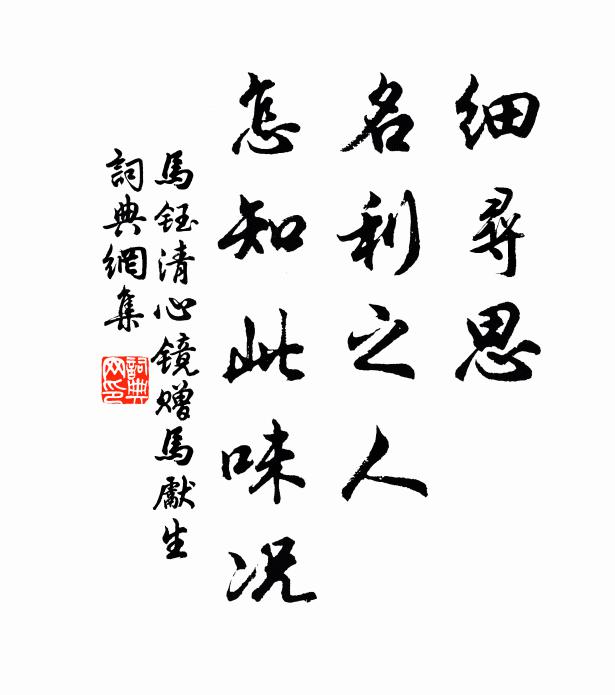 細尋思
名利之人
怎知此味况
馬鈺清心镜赠馬獻生
詞典網集
詞典网印